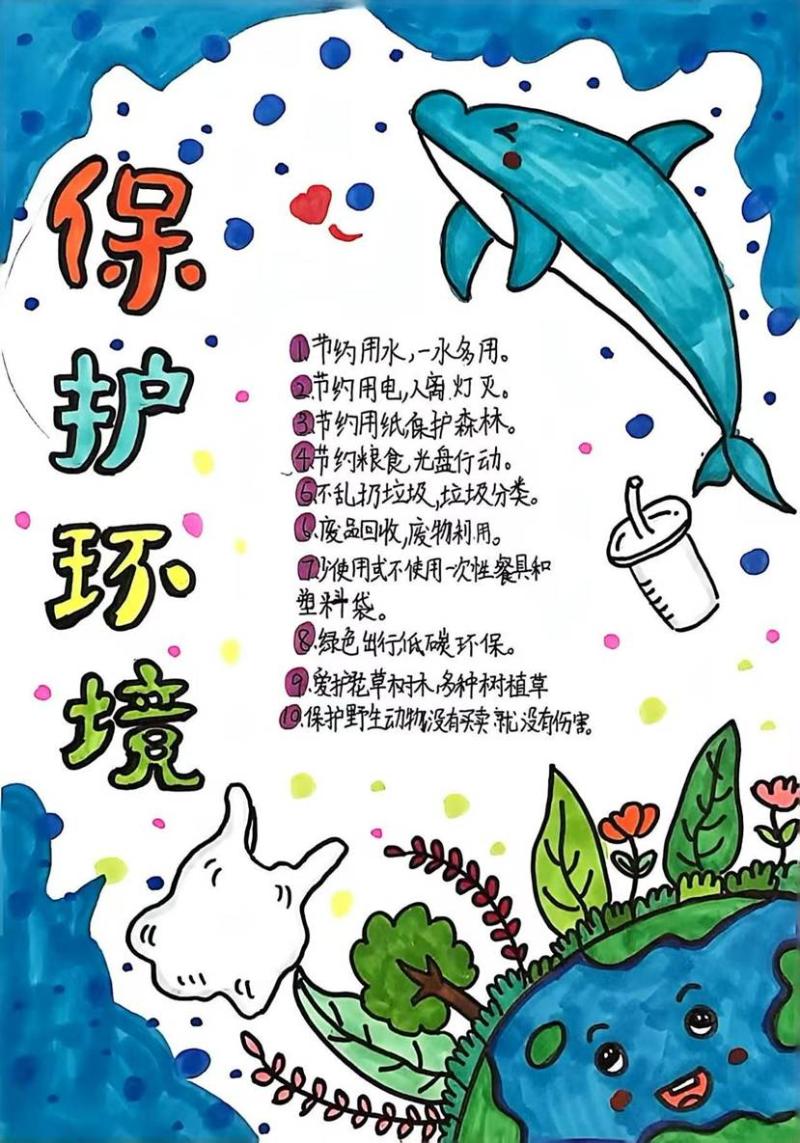 保护环境
1.节约用水,一水多用。
2.节约用电,人离灯灭。
3.节约用纸,保护森林。
4.节约粮食,光盘行动。
5.不乱扔垃圾,垃圾分类。
6.废品回收,废物利用。
7.少使用或不使用一次性餐具和
塑料袋。
8.绿色出行低碳环保。
9.爱护花草树木,多种树植草
10.保护野生动物,没有买卖就没有伤害。